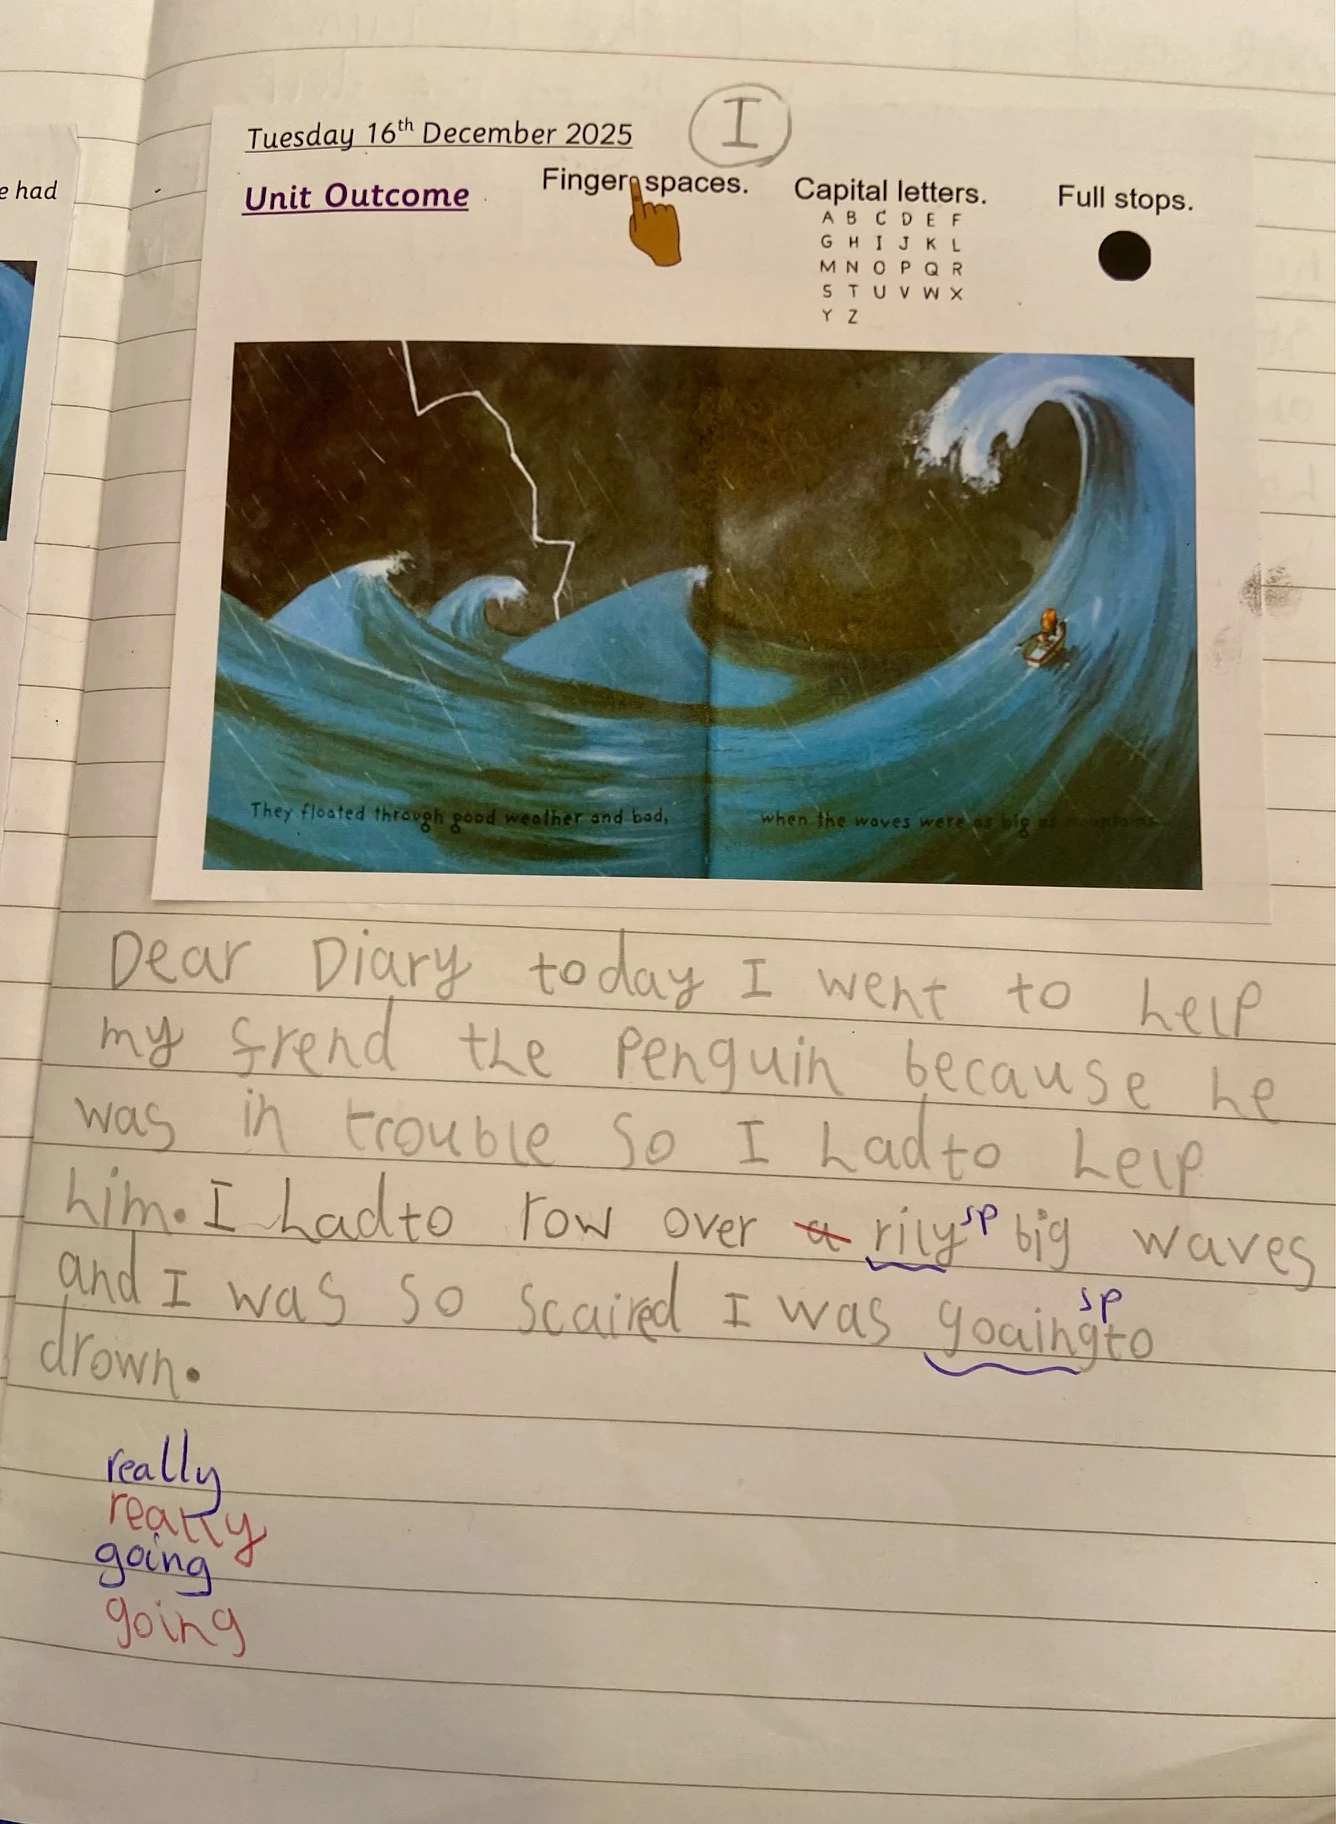 e had
Tuesday 16th December 2025
I
Unit Outcome
Finger spaces.
Capital letters.
A B C D E F
G H I J K L
M N O P Q R
S T U V W X
Y Z
Full stops.
They floated through good weather and bad,
when the waves were as big as mountains.
Dear Diary today I went to help
my frend the Penguin because he
was in trouble so I hadto help
him. I hadto row over a rily sp big waves
and I was so scaired I was goaingto sp
drown.
really
really
going
going